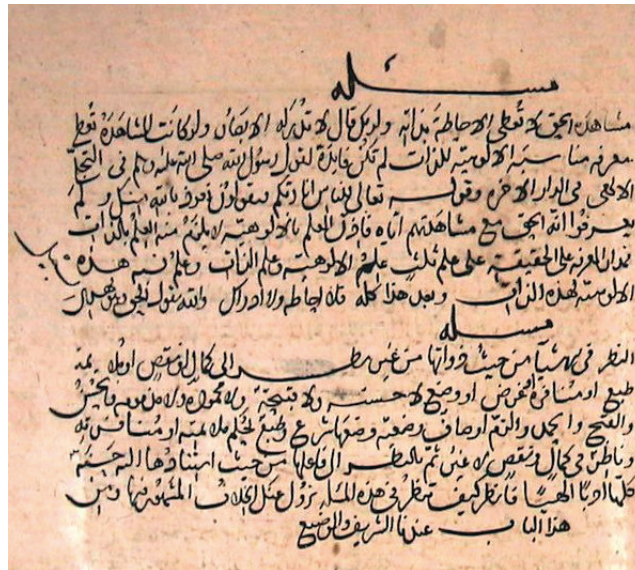 مسئله
مشاهدة الحق لا تعطى الاحاطة بذاته ولذلك قال لا تدركه الابصار ولو كانت المشاهدة تعطى
معرفة مناسبة الالوهية للذات لم تكن فايدة لقول رسول الله صلى الله عليه وسلم فى التجلى
الالهى فى الدار الاخرة وقوله تعالى للناس انا ربكم ويقولون نعوذ بالله منك ولم
يعرفوا انه الحق مع مشاهدتهم اياه فاذن العلم بالالوهية لا يلزم منه العلم بالذات
فمدار المعرفة على الحقيقة على علم ثلث علم الالوهية وعلم الذات وعلم نسبة هذه
الالوهية لهذه الذات وبعد هذا كله فلا احاطة ولا ادراك والله يقول الحق وهو يهدى السبيل
مسئله
النظر فى الاشيا من حيث ذواتها من غير نظر الى كمال او نقص او ملايمة
طبع او منافرة او غرض او وضع لا حسنة ولا قبيحة ولا محمودة ولا مذمومة والحسن
والقبح والحمد والذم اوصاف وضعية وضعها شرع وطبع بحكم ملايمة او منافرة
وناظر فى كمال ونقص لا غير ثم بالنظر الى فاعلها من حيث استنادها اليه حسنة
كلها ادبا الهيا فانظر كيف تنظر فى هذه المسئلة يزول عنك الخلاف المشهور فيها ومن
هذا الباب عندنا الشريف والوضيع